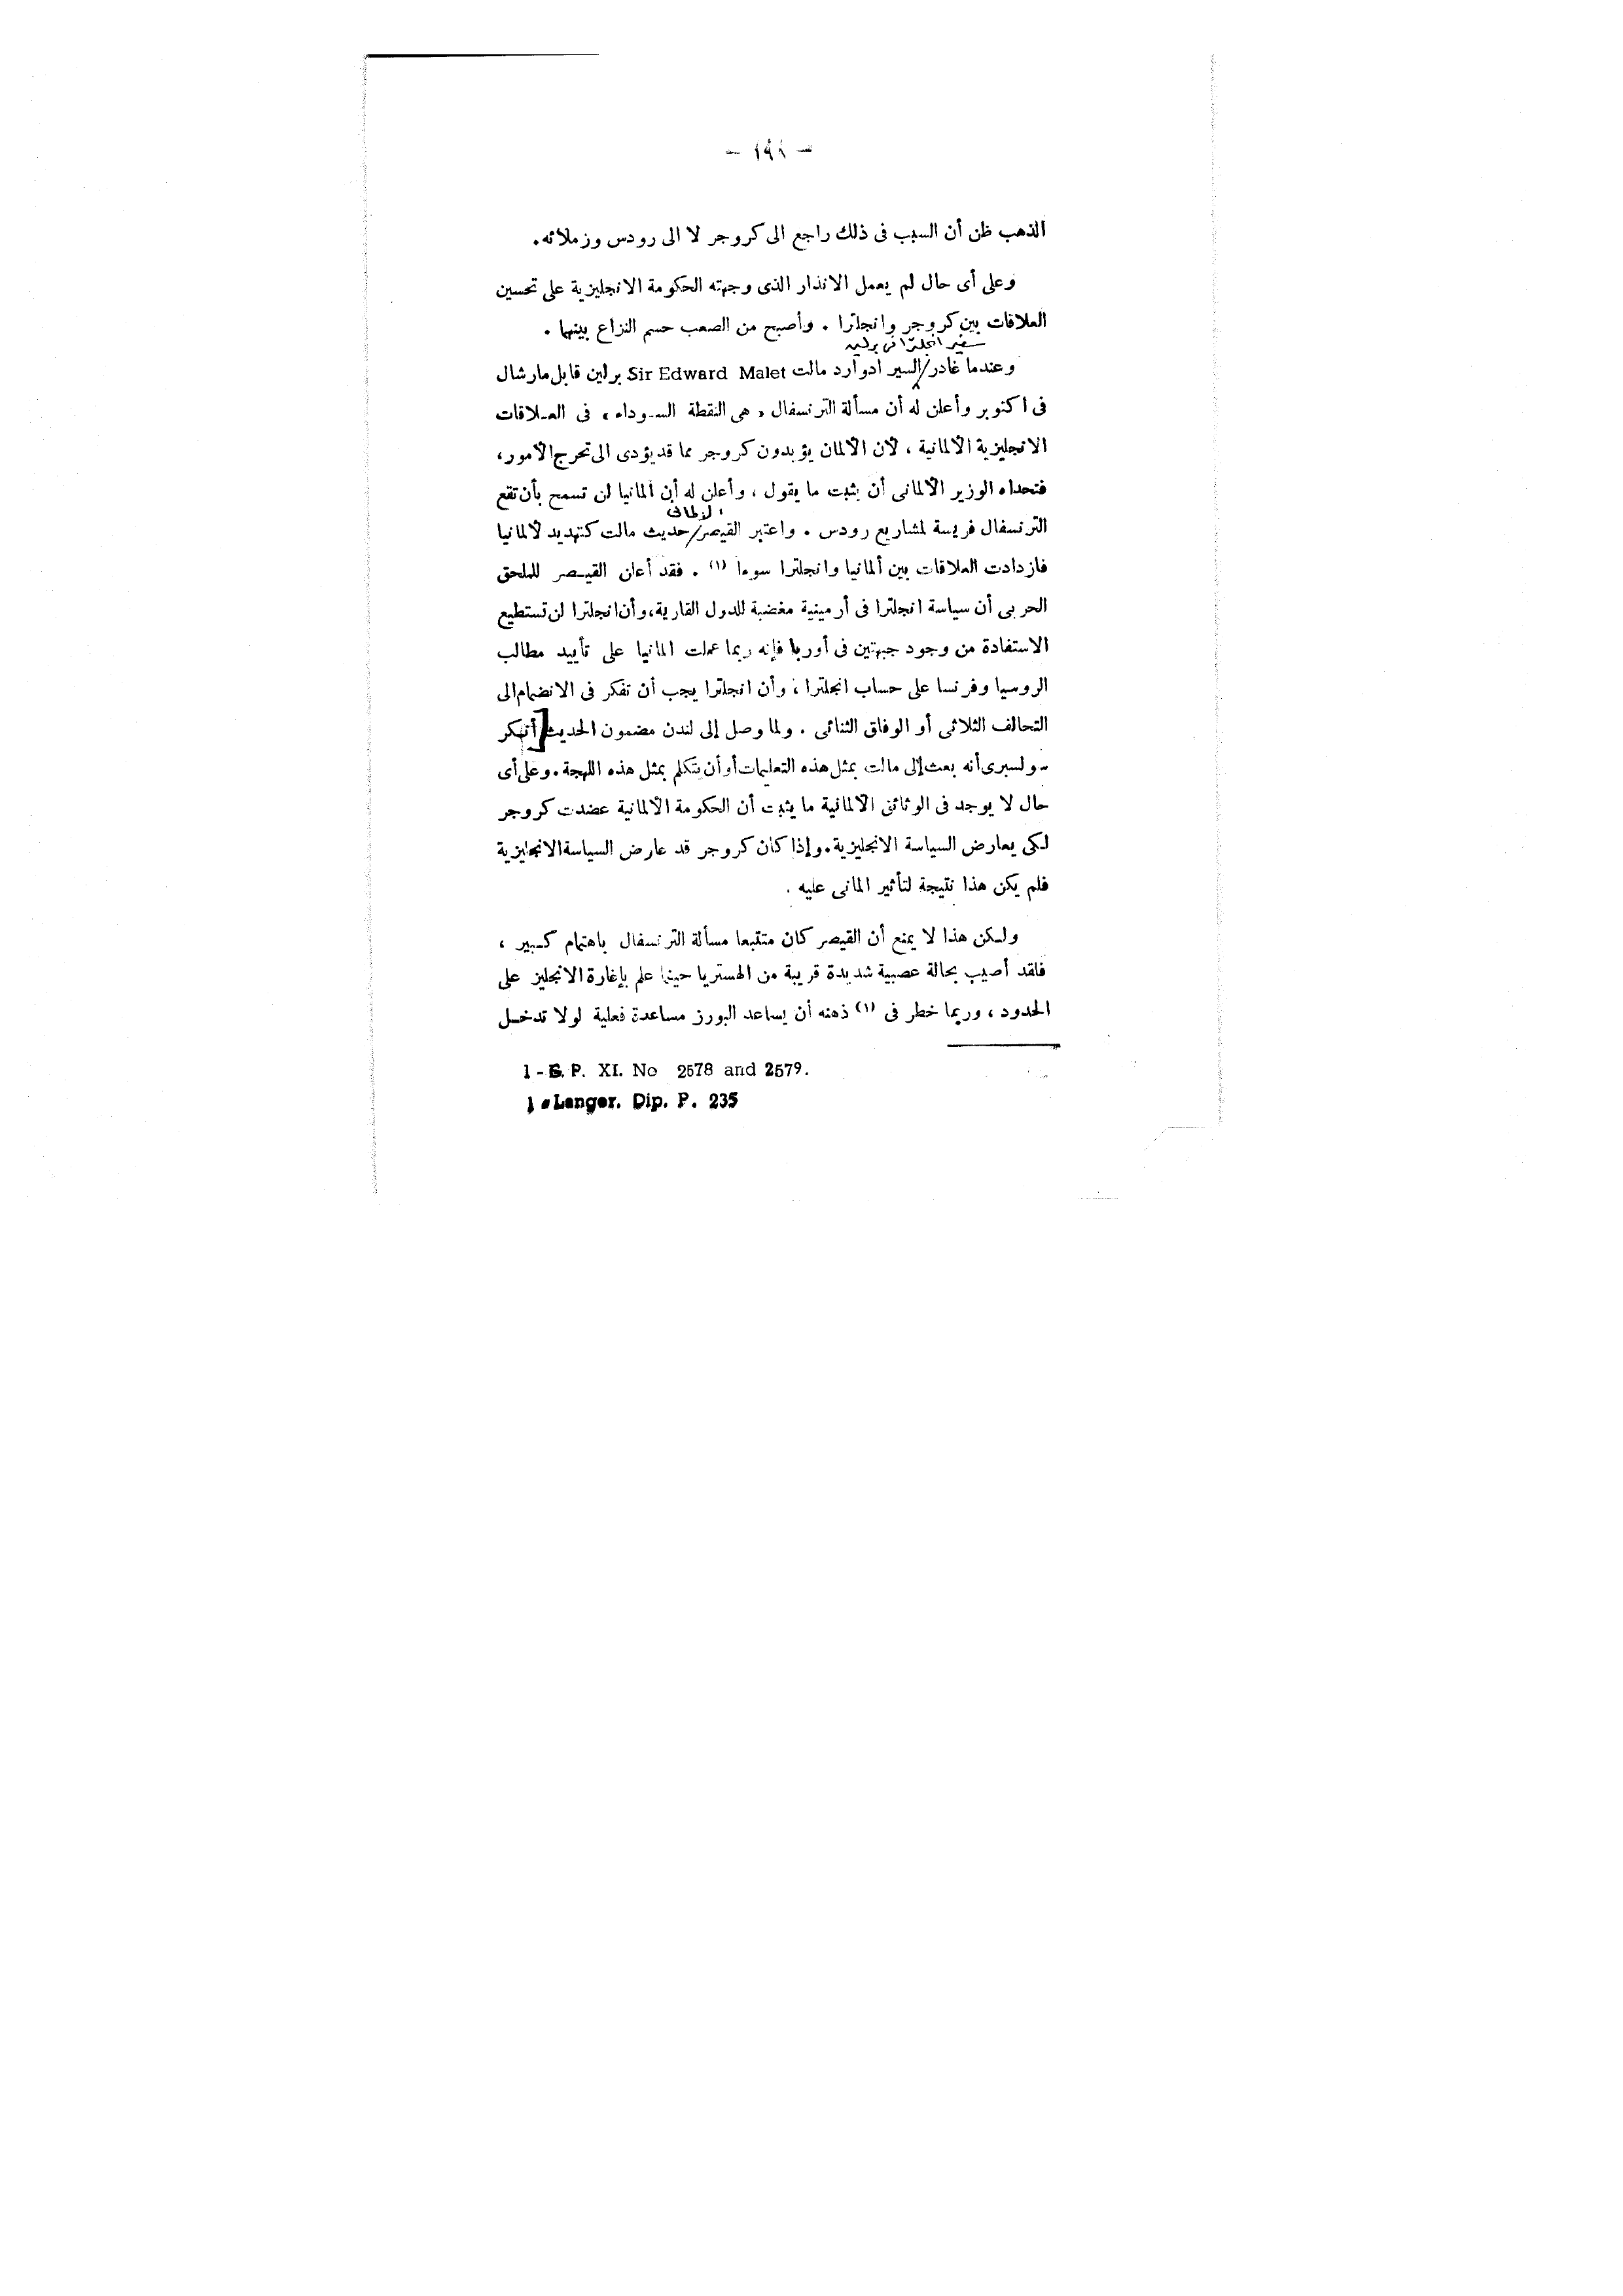 — ١٩٨ —
الذهب ظن أن السبب فى ذلك راجع الى كروجر لا الى رودس وزملائه.
وعلى أى حال لم يعمل الانذار الذى وجهته الحكومة الانجليزية على تحسين
العلاقات بين كروجر وانجلترا . وأصبح من الصعب حسم النزاع بينهما .
سفير انجلترا فى برلين
وعندما غادر/السير ادوارد مالت Sir Edward Malet برلين قابل مارشال
فى اكتوبر وأعلن له أن مسألة الترنسفال « هى النقطة السوداء » فى العلاقات
الانجليزية الألمانية ، لأن الألمان يؤيدون كروجر مما قد يؤدى الى تحرج الأمور ،
فتحداه الوزير الألمانى أن يثبت ما يقول ، وأعلن له أن ألمانيا لن تسمح بأن تقع
الألمانى
الترنسفال فريسة لمشاريع رودس . واعتبر القيصر/حديث مالت كتهديد لألمانيا
فازدادت العلاقات بين ألمانيا وانجلترا سوءا (١) . فقد أعلن القيصر للملحق
الحربى أن سياسة انجلترا فى أرمينية مغضبة للدول القارية، وأن انجلترا لن تستطيع
الاستفادة من وجود جبهتين فى أوربا فإنه ربما عملت المانيا على تأييد مطالب
الروسيا وفرنسا على حساب انجلترا ، وأن انجلترا يجب أن تفكر فى الانضمام الى
التحالف الثلاثى أو الوفاق الثنائى . ولما وصل إلى لندن مضمون الحديث [أنكر
سولسبرى أنه بعث إلى مالت بمثل هذه التعليمات أو أن يتكلم بمثل هذه اللهجة . وعلى أى
حال لا يوجد فى الوثائق الألمانية ما يثبت أن الحكومة الألمانية عضدت كروجر
لكى يعارض السياسة الانجليزية. وإذا كان كروجر قد عارض السياسة الانجليزية
فلم يكن هذا نتيجة لتأثير المانى عليه .
ولكن هذا لا يمنع أن القيصر كان متتبعا مسألة الترنسفال باهتمام كبير ،
فلقد أصيب بحالة عصبية شديدة قريبة من الهستريا حينما علم بإغارة الانجليز على
الحدود ، وربما خطر فى (١) ذهنه أن يساعد البورز مساعدة فعلية لولا تدخل
1 - G. P. XI. No 2578 and 2579.
1 - Langer. Dip. P. 235